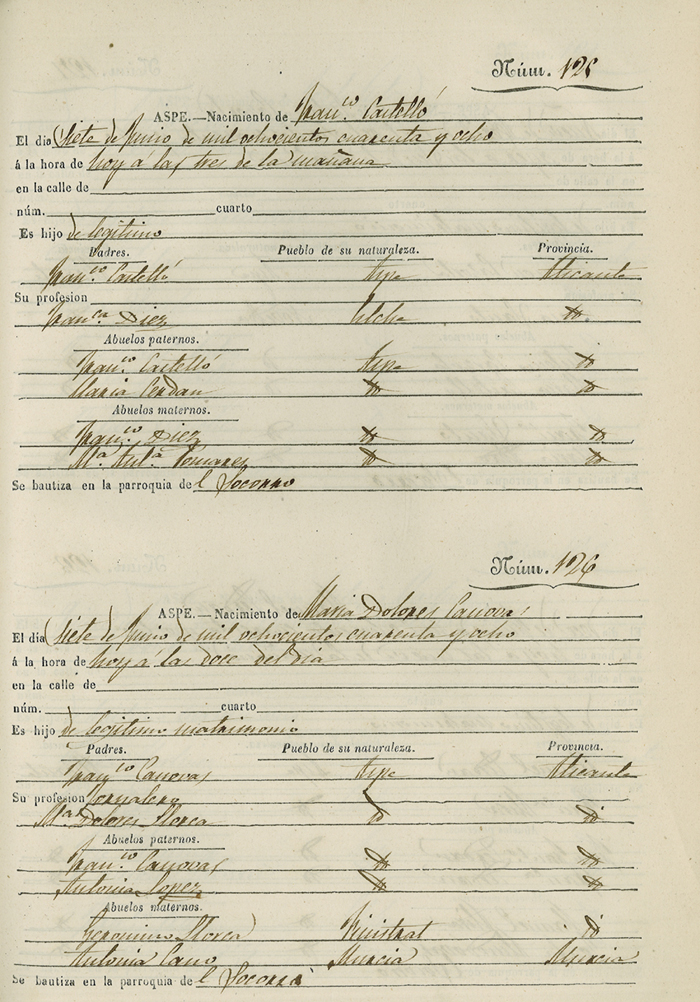 Núm. 125
ASPE.—Nacimiento de Fran.co Castelló
El dia siete de Junio de mil ochocientos cuarenta y ocho
á la hora de hoy á las tres de la mañana
en la calle de
núm. cuarto
Es hijo de legitimo
Padres. Pueblo de su naturaleza. Provincia.
Fran.co Castelló Aspe Alicante
Su profesion
Fran.ca Diez Elche do
Abuelos paternos.
Fran.co Castelló Aspe do
Maria Cerdan do do
Abuelos maternos.
Fran.co Diez do do
M.a Ant.a Pomares do do
Se bautiza en la parroquia de l Socorro
Núm. 126
ASPE.—Nacimiento de Maria Dolores Canovas
El día siete de Junio de mil ochocientos cuarenta y ocho
á la hora de hoy á las doce del dia
en la calle de
núm. cuarto
Es hijo de legitimo matrimonio
Padres. Pueblo de su naturaleza. Provincia.
Fran.co Canovas Aspe Alicante
Su profesion Jornalero
M.a Dolores Llorca do do
Abuelos paternos.
Fran.co Canovas do do
Antonia Lopez do do
Abuelos maternos.
Geronimo Llorca Finistrat do
Antonia Cano Murcia Murcia
Se bautiza en la parroquia de l Socorro